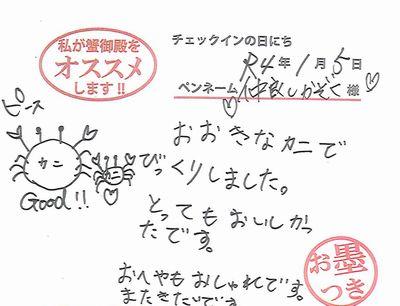 私が蟹御殿を
オススメ
します!!
チェックインの日にち
R4年1月5日
ペンネーム 仲良しかぞく 様
ピース
カニ
カニ
Good!!
おおきなカニで
びっくりしました。
とってもおいしかっ
たです。
おへやもおしゃれです。
またきたいです
お墨
つき